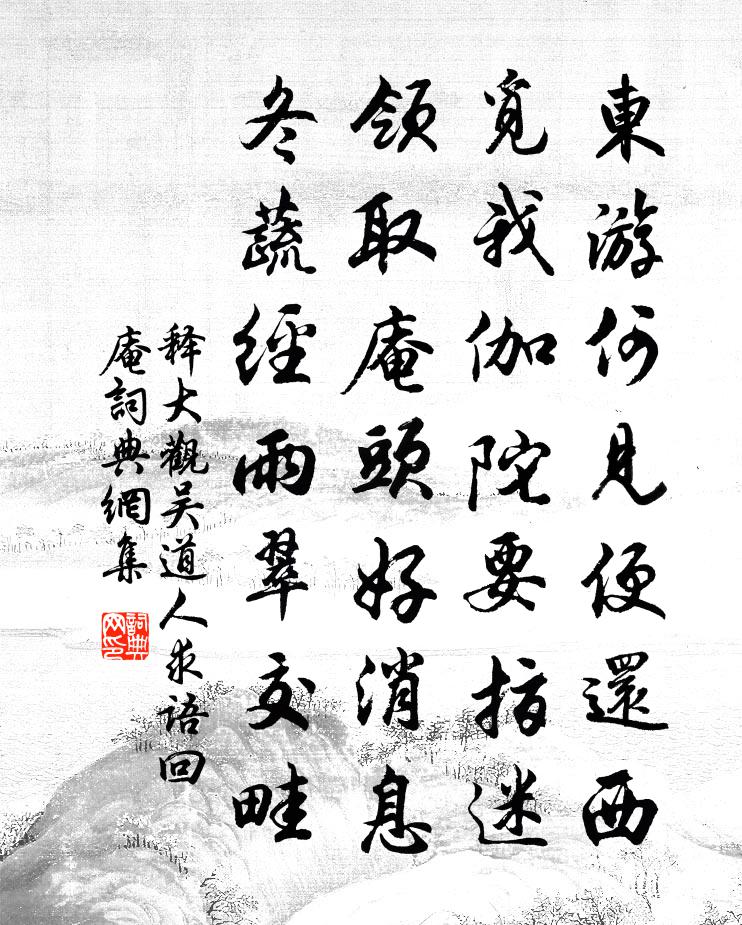 東游何見便還西
覓我伽陀要指迷
領取庵頭好消息
冬蔬經雨翠交畦
释大觀吴道人求語回
庵詞典網集
詞典
网印